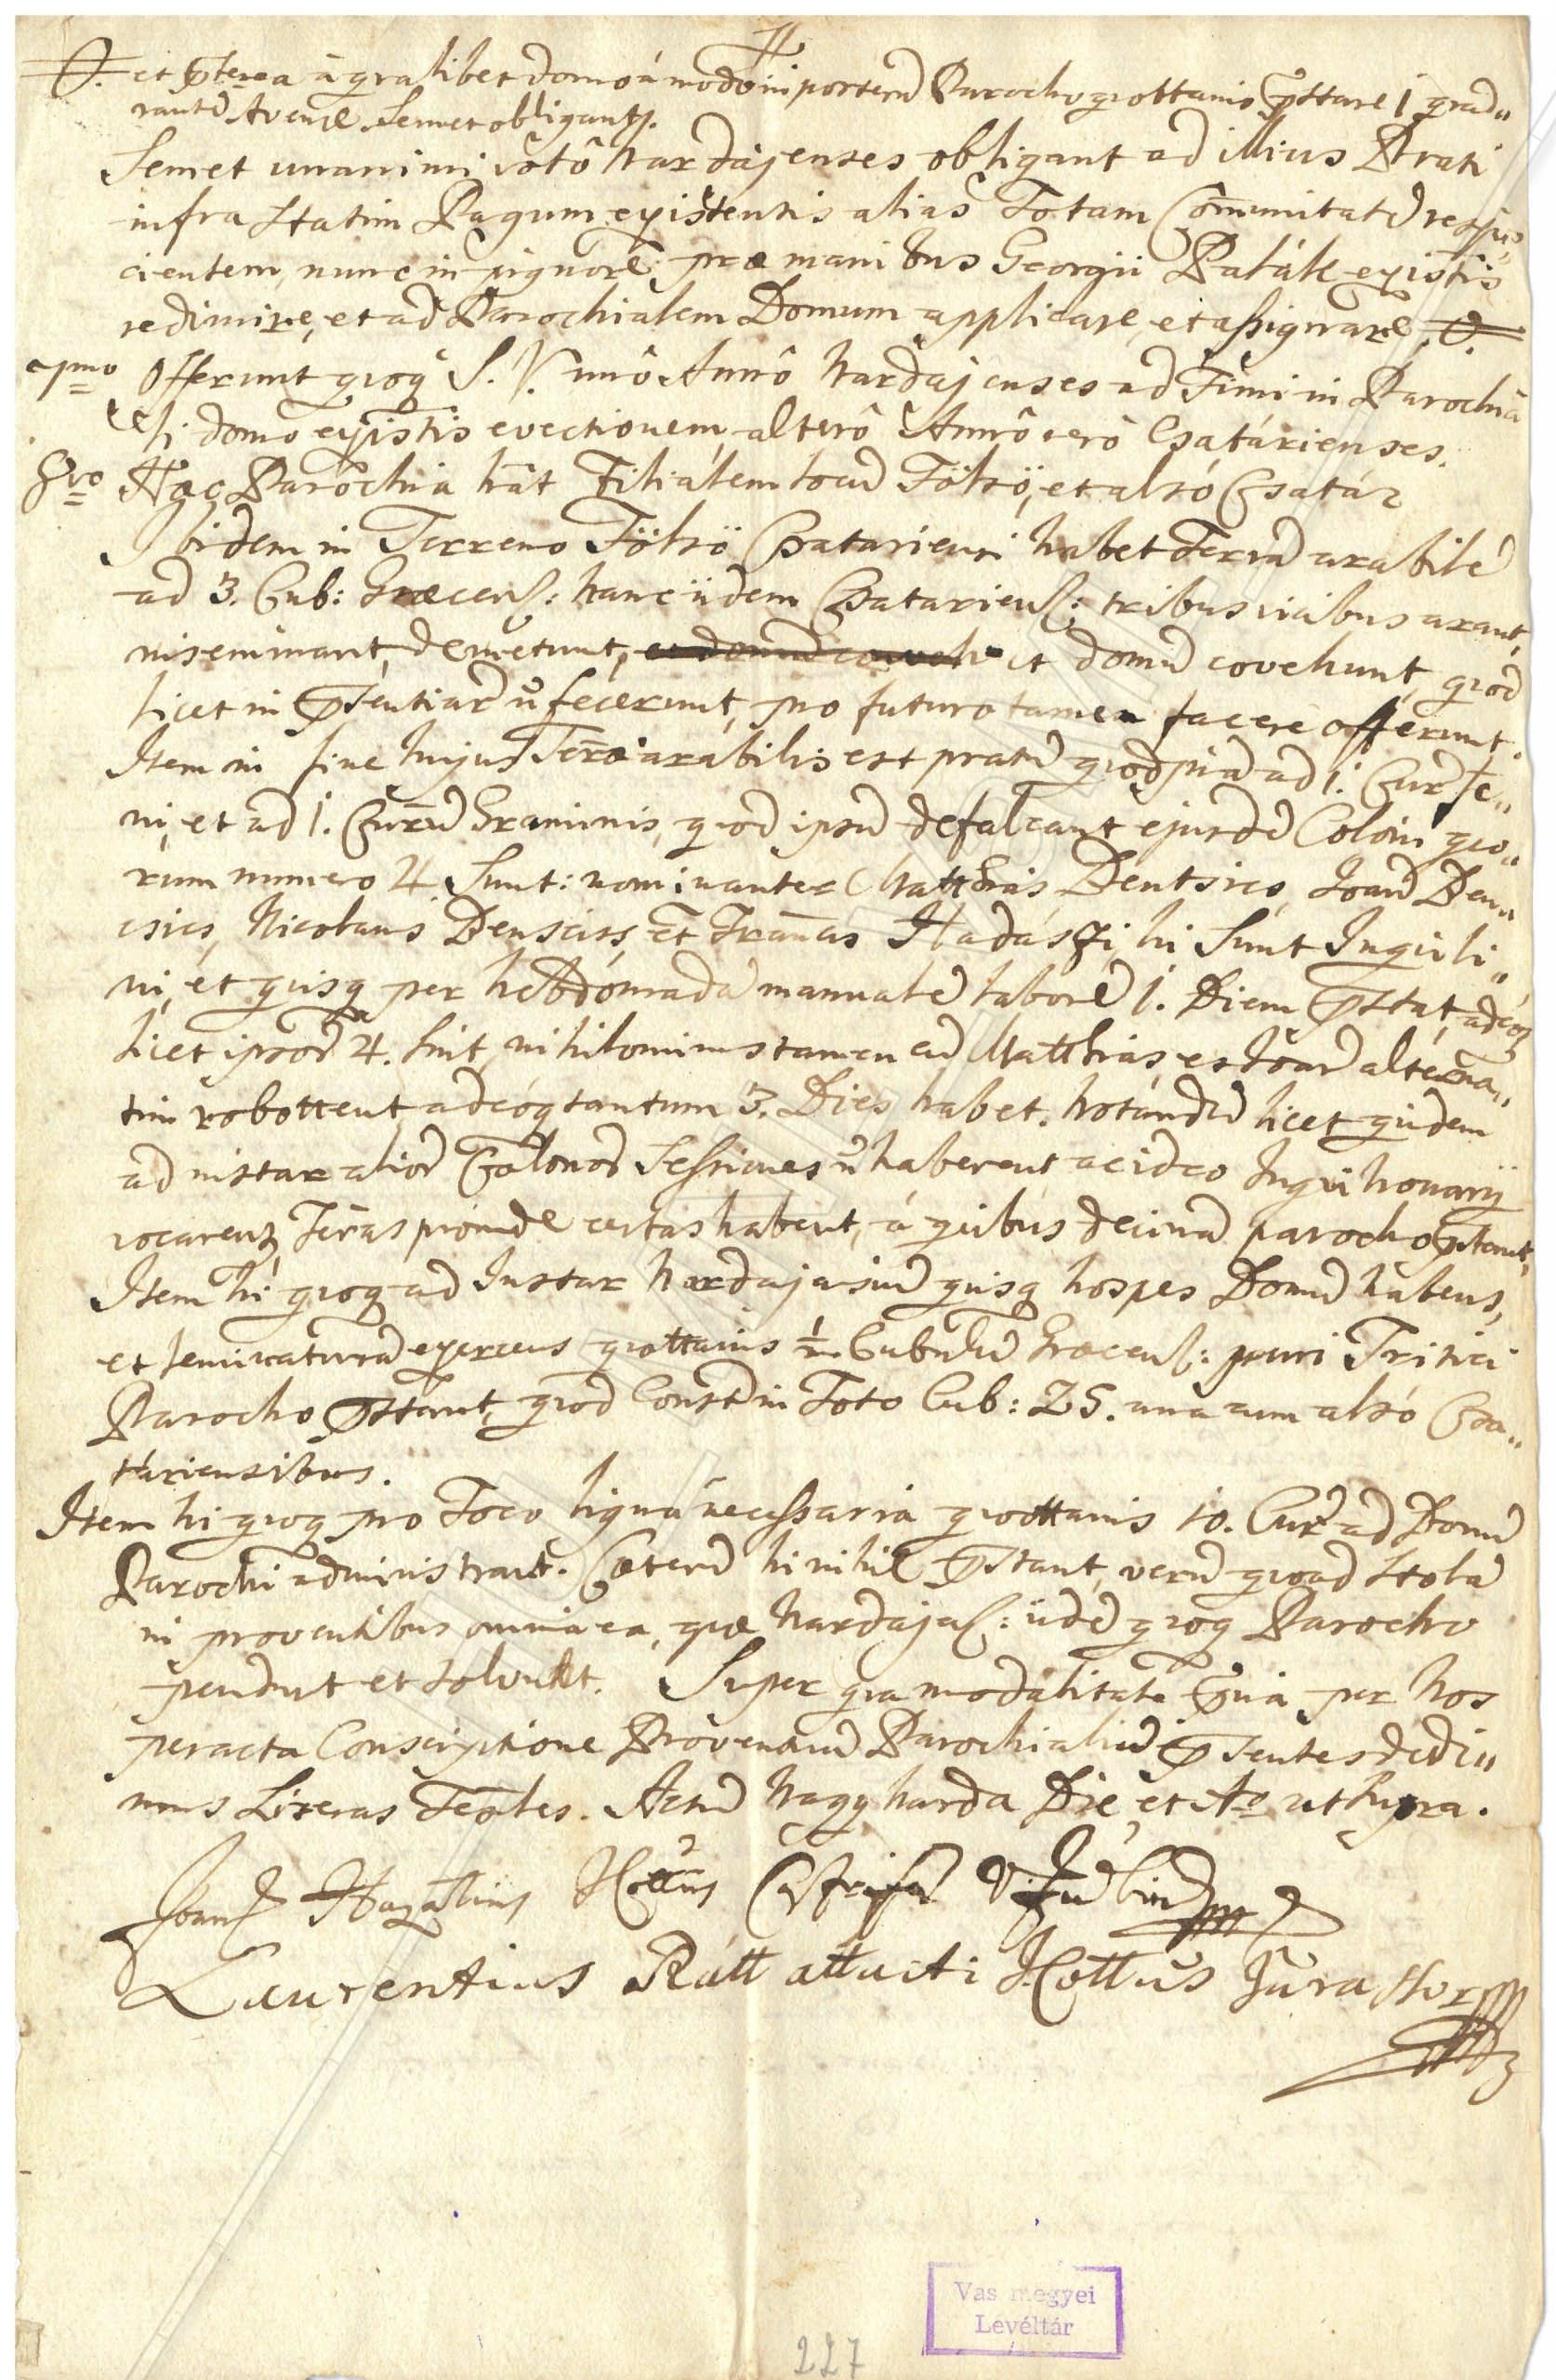 et a qualibet domo á modo in posterũ Parocho quottanis pstare 1 quad„
rantẽ Avenæ Semet obligant.
Semet unanimi votô Nardajenses obligant ad illius Prati
infra statim Pagum existentis alias Totam Cõmunitatẽ respi„
cientem, nunc in pignore præ manibus Georgii Paták existis
redimere, et ad Parochialem Domum applicare, et assignare
7mo Offerunt quoq S. V. unô Annô Nardajenses ad Fimi in Parochia„
li domo existis evectionem, alterô Annô verô Csatárienses.
8vo Hæc Parochia hãt Filialem locũ Fölsö, et alsó Csatár
Ibidem in Terreno Fölsö Csatariensi habet Terrã arabilẽ
ad 3. Cub: Græcens: hanc iidem Csatariens: tribus vicibus arant,
inseminant, demetunt, et domũ covehunt, quod
licet in psentiarũ ñ fecerunt, pro futuro tamen facere offerunt.
Item in fine hujus Terræ arabilis est pratũ quodpiã ad 1. Cur fœ„
ni, et ad 1. Currũ Graminis, quod ipsũ defalcant ejusdẽ Coloni quo„
rum numero 4 Sunt: nominanter Matthias Dentsics, Joañ Den„
csics, Nicolaus Denscits, et Francis Hadászi, hi Sunt Inquili„
ni, et quisq per hebdomadã manualẽ laborẽ 1. Diem pstat, adeoq
licet ipsorũ 4. sint, nihilominus tamen cũ Matthias, et Joañ alterna„
tim robottent, adeóq tantum 3. Dies habet. Notandũ licet quidem
ad instar aliorũ Colonorũ Sessiones ñ haberent ac ideo Inquilionarÿ
vocarent, Terras proinde certas habent, á quibus decimã parocho pstant,
Item hi quoq ad Instar Nardajasiũ quisq hospes Domũ habens,
et seminaturã exercens quottanis ½ Cubulũ Græcens: puri Tritici
Parocho pstant, quod Constẽ in Toto Cub: 25. una cum alsó Csa„
táriensibus.
Item hi quoq pro Foco ligna necessaria quottanis 10. Cur ad Domũ
Parochi administrant. Cæterũ hi nihil pstant, verũ quoad Stolã
in proventibus omnia ea, quæ Nardajas: iidẽ quoq Parocho
pendunt et solvunt. Super qua modalitate pvia per Nos
peracta Conscriptione Proventuũ Parochialiũ psentes dedi„
mus Literas Testles. Actũ Nagy narda Die, et Ao ut supra.
Laurentius Rátt attacti Cottus Jurassor
Vas megyei
Levéltár
227